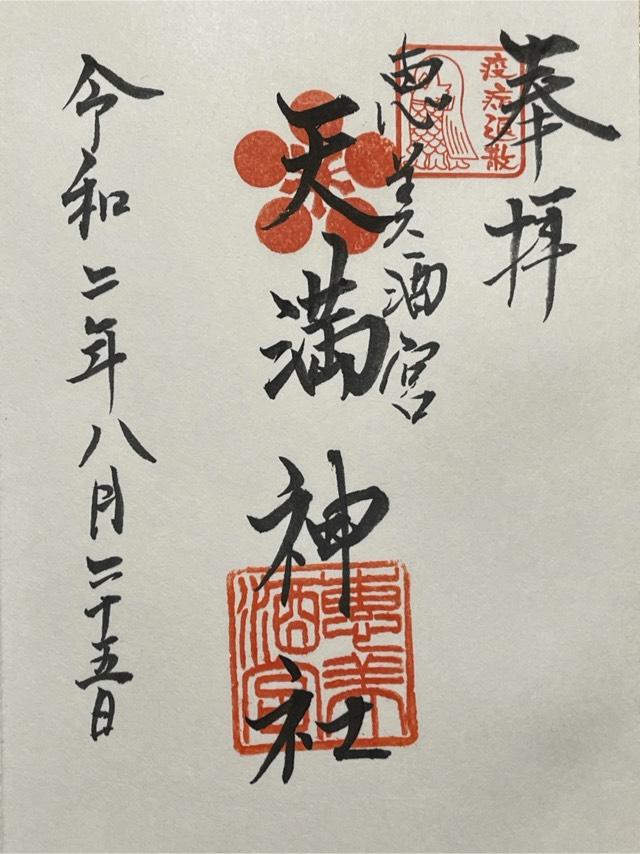 奉拝
疫病退散
恵美酒宮
天満神社
惠美
酒宮
令和二年八月二十五日